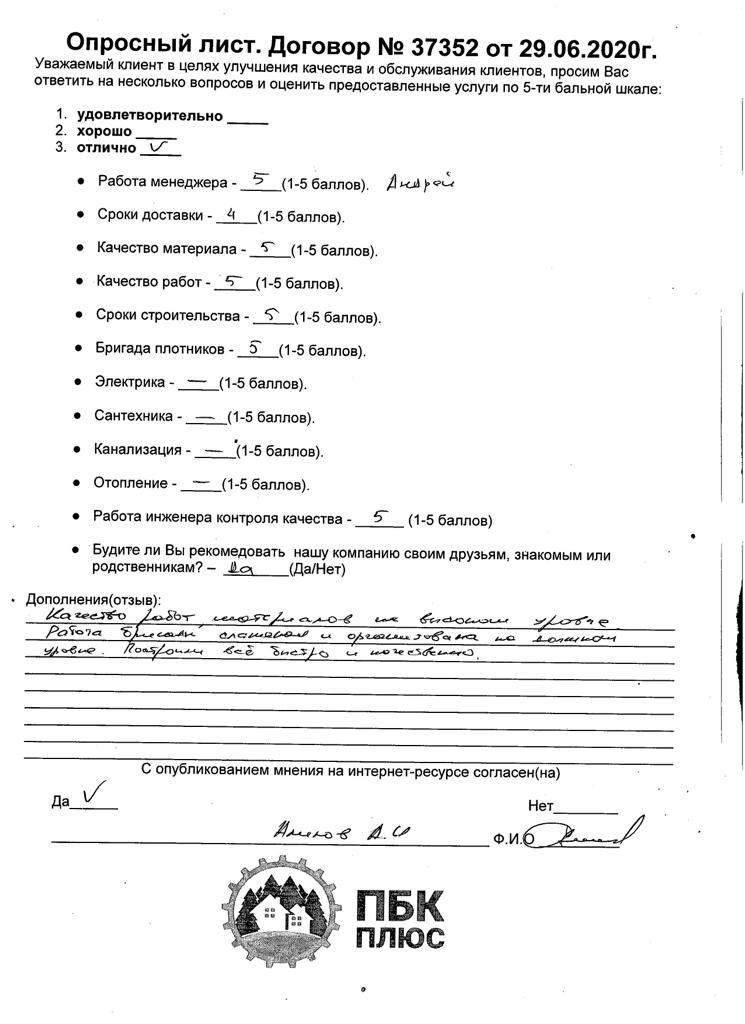 Опросный лист. Договор № 37352 от 29.06.2020г.
Уважаемый клиент в целях улучшения качества и обслуживания клиентов, просим Вас
ответить на несколько вопросов и оценить предоставленные услуги по 5-ти бальной шкале:
1. удовлетворительно _____
2. хорошо _____
3. отлично __V__
• Работа менеджера - __5__(1-5 баллов). Андрей
• Сроки доставки - __4__(1-5 баллов).
• Качество материала - __5__(1-5 баллов).
• Качество работ - __5__(1-5 баллов).
• Сроки строительства - __5__(1-5 баллов).
• Бригада плотников - __5__(1-5 баллов).
• Электрика - __—__(1-5 баллов).
• Сантехника - __—__(1-5 баллов).
• Канализация - __—__(1-5 баллов).
• Отопление - __—__(1-5 баллов).
• Работа инженера контроля качества - __5__ (1-5 баллов)
• Будите ли Вы рекомедовать нашу компанию своим друзьям, знакомым или
родственникам? – __Да__(Да/Нет)
Дополнения(отзыв):
Качество работ, материалов на высоком уровне
Работа бригады слаженая и организована на должном
уровне. Построили всё быстро и качественно.
С опубликованием мнения на интернет-ресурсе согласен(на)
Да__V__ Нет_____
А.И Ф.И.О
ПБК
ПЛЮС